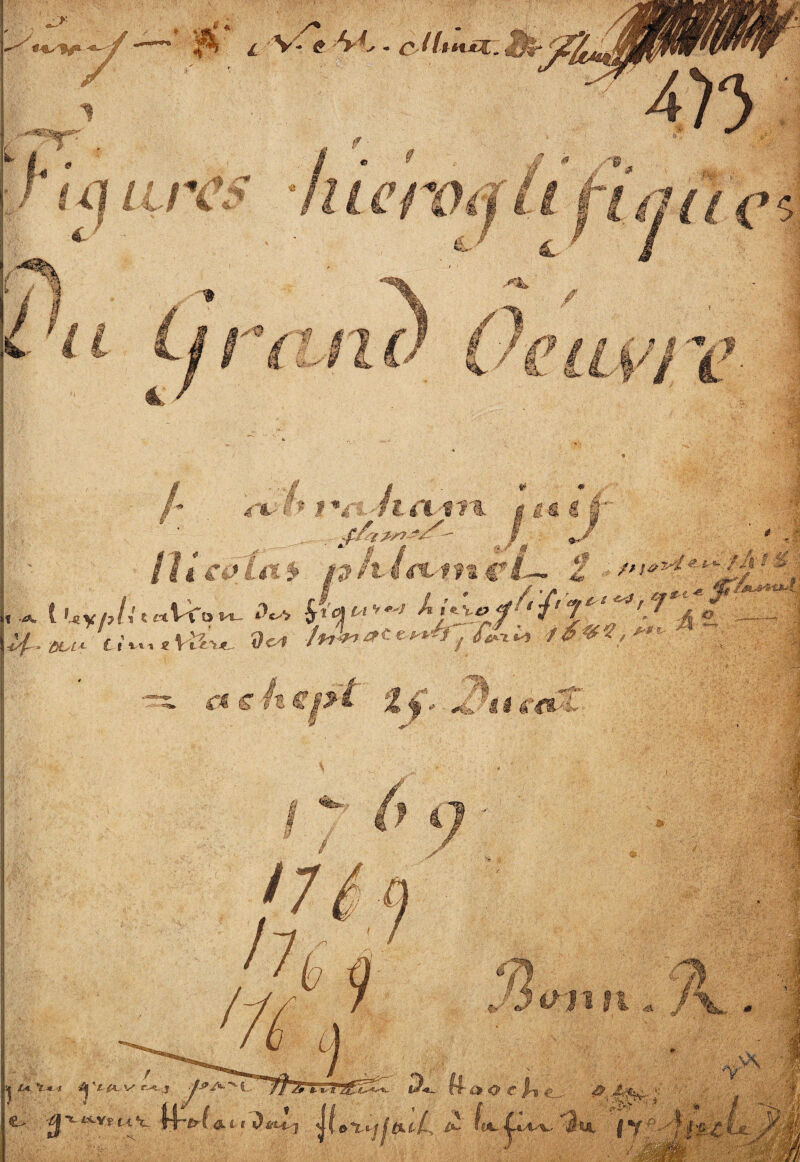 N. Minet. De Fleury
473
Figures hiéroglifiques
Du Grand Oéuvre
1. abraham juif
flamel
Nicolas phlamel 2. mort en 1418
a l'explication Des figures hiéroglifiques, que Flamel
au cimetiere Des Innocents, Paris 1682, in 4º
= achept 25. Ducat
1769
1769
1769
1769
Bonn. R.
24
gravées par Romain De Hooche
graveur Holandais floryssait à la fin Du 17e Siecle)